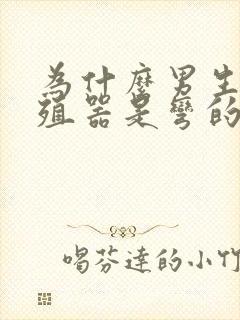 為什麼男生
殖器是彎的
喝芬達的小竹